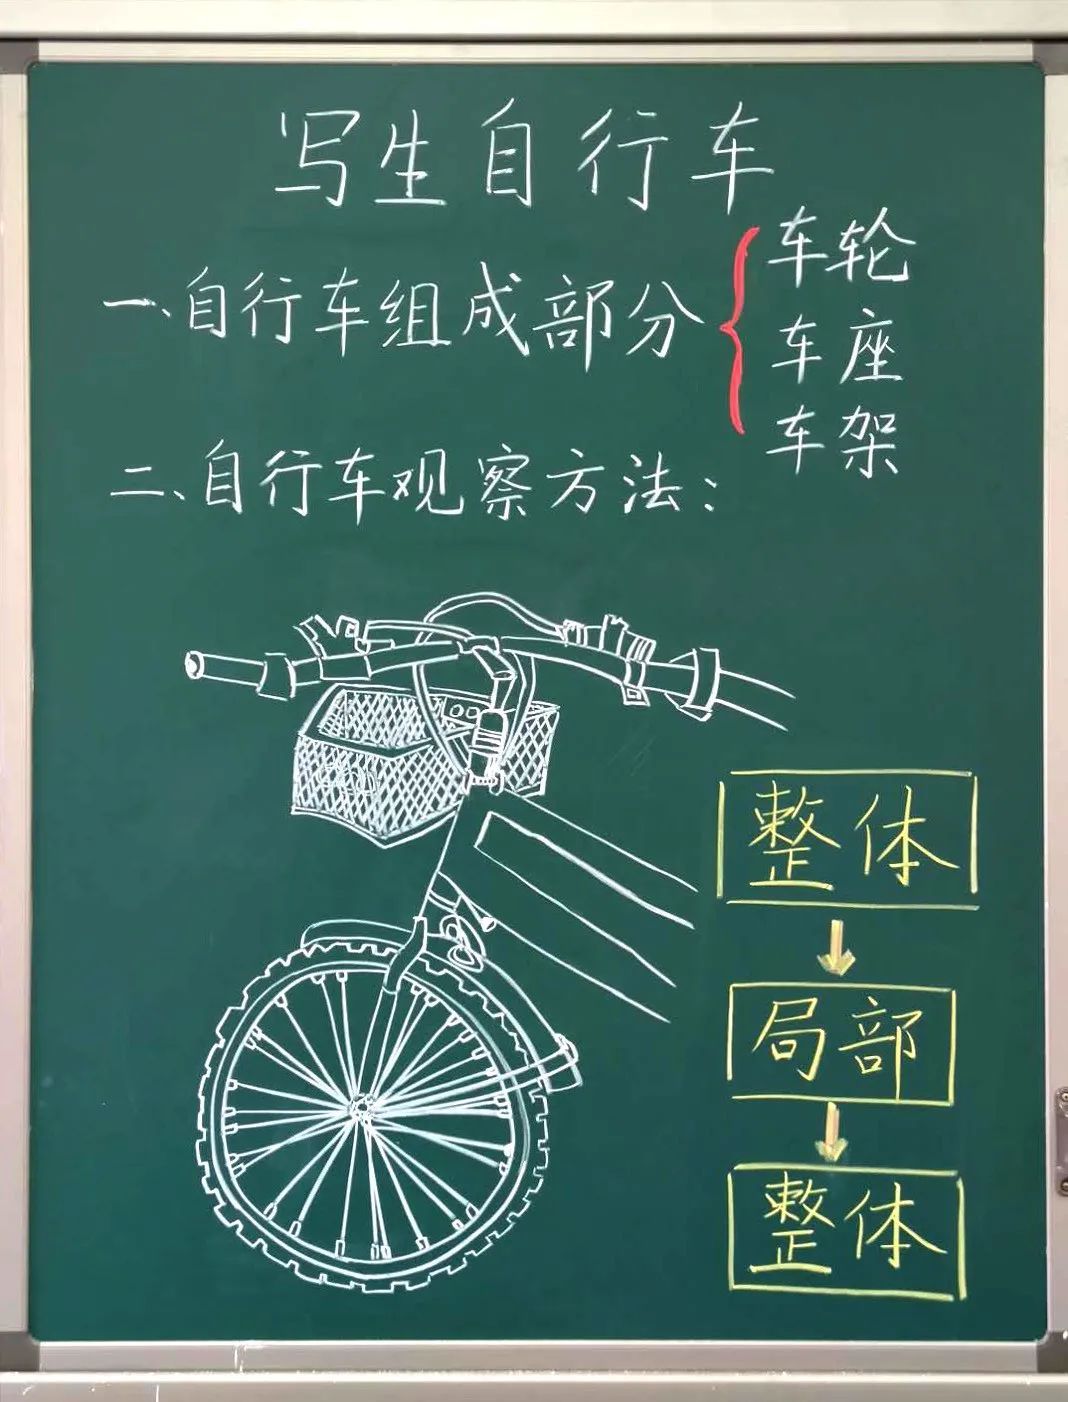 写生自行车
一、自行车组成部分
车轮
车座
车架
二、自行车观察方法：
整体
局部
整体